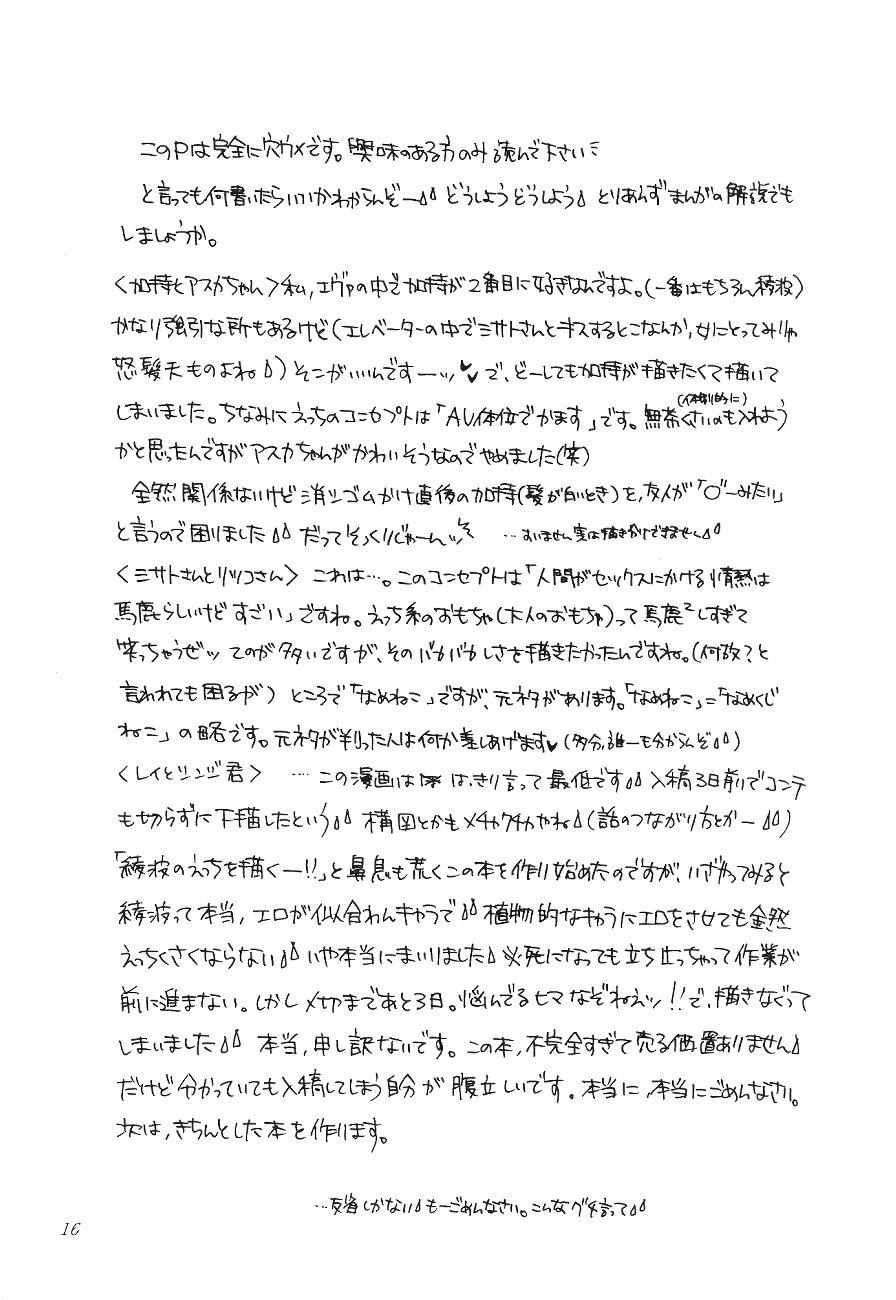 このPは完全に穴ウメです。興味のある方のみ読んで下さいミ
と言っても何書いたらいいかわからんぞー どうしようどうしよう とりあえずまんがの解説でも
しましょうか。
〈加持とアスカちゃん〉私,エヴァの中で加持が2番目に好きなんですよ。(一番はもちろん綾波)
かなり強引な所もあるけど(エレベーターの中でミサトさんとキスするとこなんか,女にとってみりゃ
怒髪天ものよね)そこがいいんですーッ♥♥ で、どーしても加持が描きたくて描いて
しまいました。ちなみにえっちのコンセプトは「AV体位でかます」です。無茶くさいのも入れよう
(体制的に)
かと思ったんですがアスカちゃんがかわいそうなのでやめました(笑)
全然関係ないけど消シゴムかけ直後の加持(髪が白いとき)を,友人が「○゛ーみたい」
と言うので困りました だってそっくりじゃーんッ …すいません実は描き分けできません
〈ミサトさんとリツコさん〉 これは…。このコンセプトは「人間がセックスにかける情熱は
馬鹿らしいけどすごい」ですね。えっち系のおもちゃ(大人のおもちゃ)って馬鹿²しすぎて
笑っちゃうぜッ てのが多いですが、そのバカバカしさを描きたかったんですね。(何故?と
言われても困るが) ところで「なめねこ」ですが、元ネタがあります。「なめねこ」=「なめくじ
ねこ」の略です。元ネタが判った人は何か差しあげます♥(多分,誰一も分からんぞ)
〈レイとシンジ君〉 …この漫画は はっきり言って最低です 入稿3日前でコンテ
も切らずに下描したという 構図とかもメチャクチャやね(話のつながり方とかー)
「綾波のえっちを描くー!!」と鼻息も荒くこの本を作り始めたのですが、いざやってみると
綾波って本当,エロが似合わんキャラで 植物的なキャラにエロをさせても全然
えっちくさくならない いや本当にまいりました 必死になっても立ち止っちゃって作業が
前に進まない。しかし〆切まであと3日。悩んでるヒマなぞねえッ!!で,描きなぐって
しまいました 本当,申し訳ないです。この本,不完全すぎて売る価置ありません
だけど分かっていても入稿してしまう自分が腹立しいです。本当に,本当にごめんなさい。
次は,きちんとした本を作ります。
…反省しかない もーごめんなさい。こんなグチ言って
16